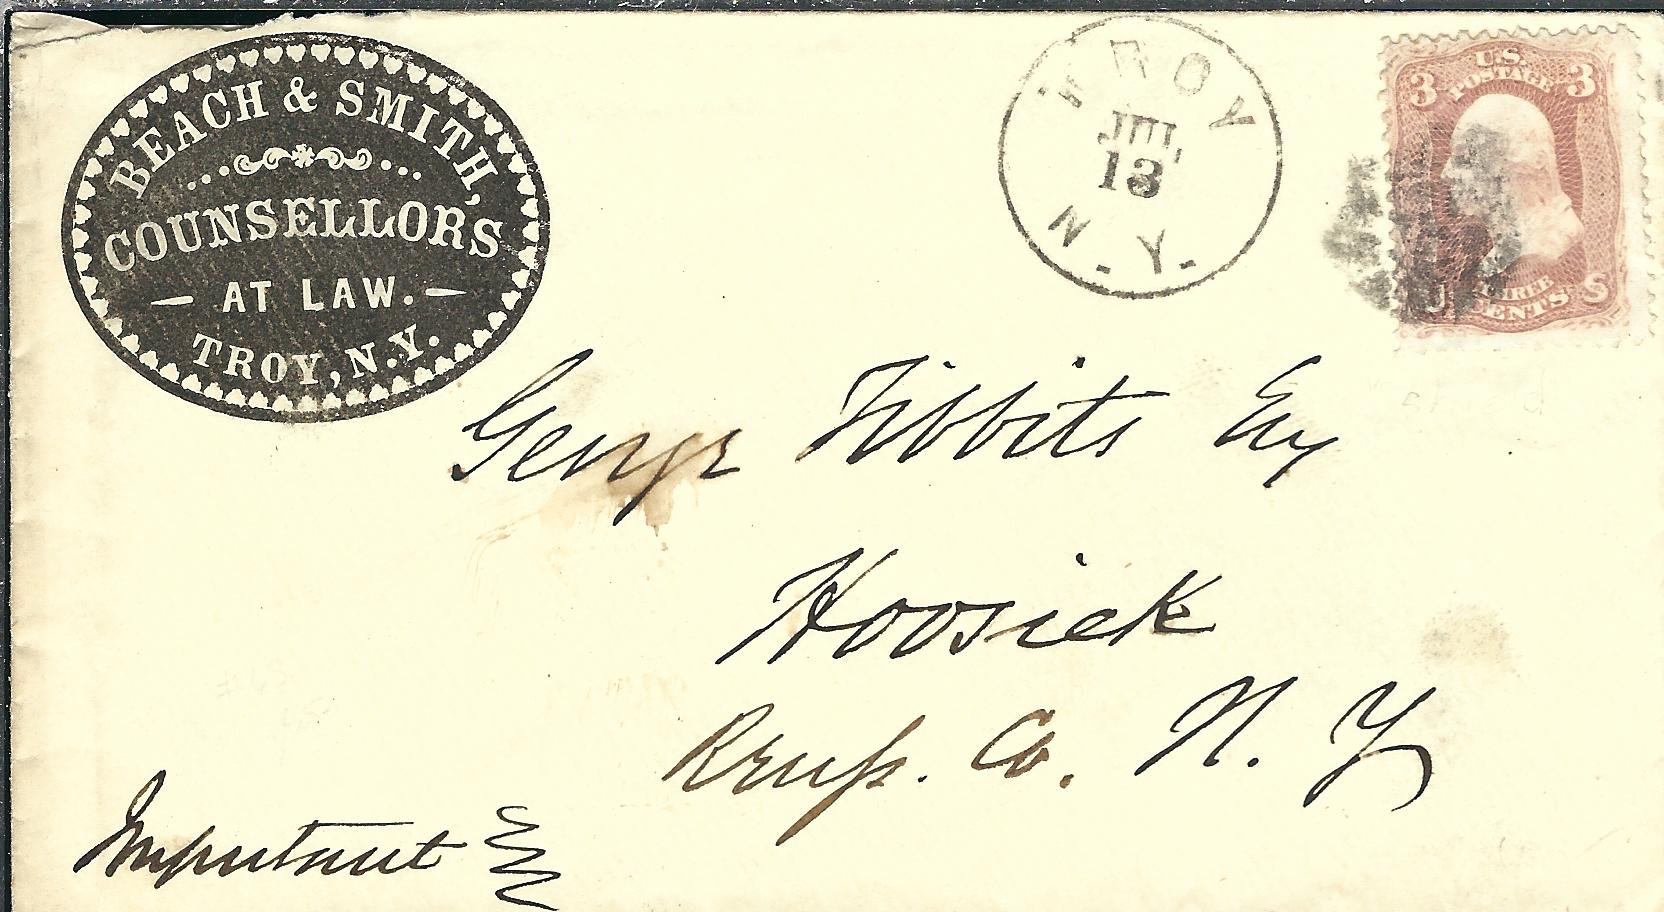 BEACH & SMITH,
COUNSELLORS
— AT LAW. —
TROY, N.Y.
TROY
JUL
13
N.Y.
U.S.
POSTAGE
3 3
THREE
CENTS
U S
George Tibbits Esq
Hoosick
Renss. Co. N. Y
Important